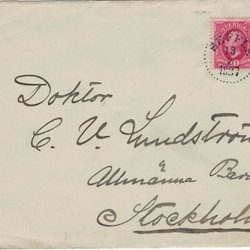 Doktor
C. V. Lundströ
Allmänna Bar
Stockhol